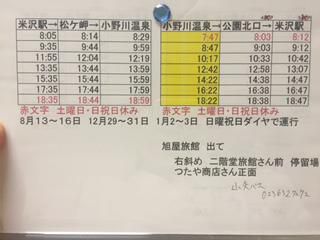 米沢駅→ 松ケ岬→ 小野川温泉 小野川温泉→ 公園北口→ 米沢駅
8:05 8:14 8:29 7:47 8:03 8:12
9:35 9:44 9:59 8:47
11:55 12:04 12:19 10:17 10:33 10:42
13:35 13:44 13:59 12:42 12:58 13:07
15:35 15:44 15:59 14:22 14:38 14:47
17:35 17:44 17:59 16:22 16:38 16:47
18:35 18:44 18:59 18:22 18:38 18:47
赤文字 土曜日・日祝日休み 赤文字 土曜日・日祝日休み
8月13~16日 12月29~31日 1月2~3日 日曜祝日ダイヤで運行
旭屋旅館 出て
右斜め 二階堂旅館さん前 停留場
つたや商店さん正面
山交バス